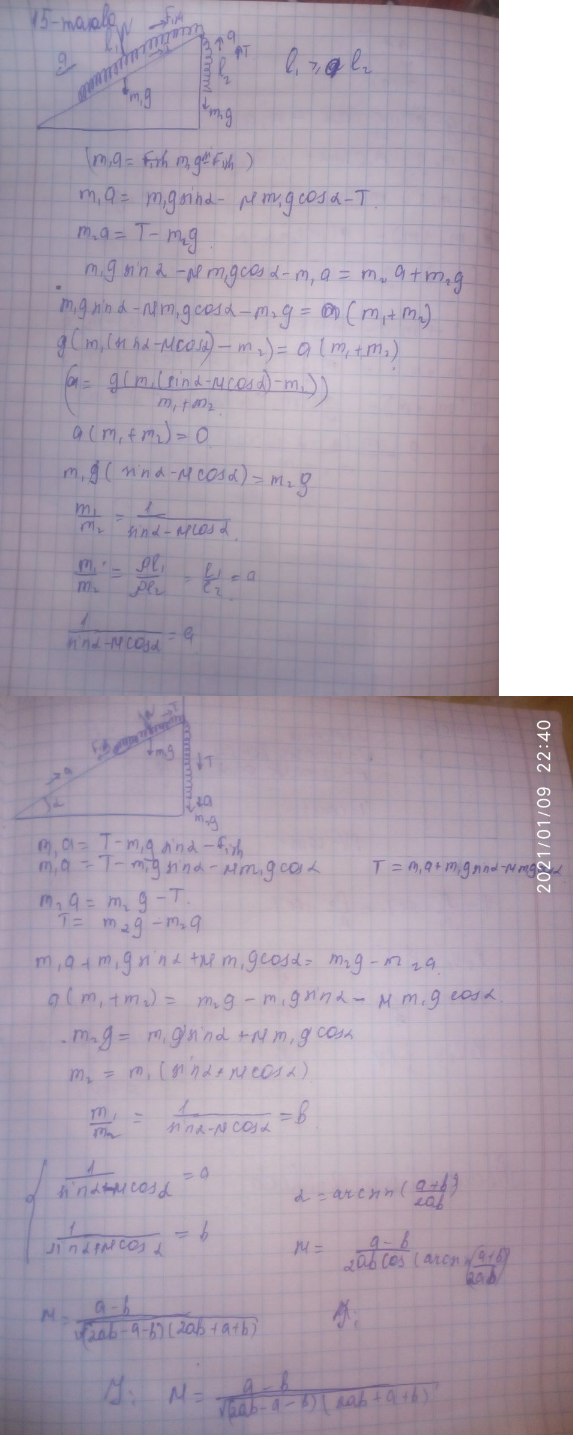 15-masala
N F_ish
l₁
a
a
T
l₂
m₁g
m₂g
l₁ > a l₂
(m₁a = F_ish m₁g F_ish)
m₁a = m₁g sinα - μm₁g cosα - T
m₂a = T - m₂g
m₁g sinα - μm₁g cosα - m₁a = m₂a + m₂g
m₁g sinα - μm₁g cosα - m₂g = a(m₁ + m₂)
g(m₁(sinα - μcosα) - m₂) = a(m₁ + m₂)
(a = g(m₁(sinα - μcosα) - m₂) / m₁ + m₂)
a(m₁ + m₂) = 0
m₁g(sinα - μcosα) = m₂g
m₁/m₂ = 1/(sinα - μcosα)
m₁/m₂ = ρl₁/ρl₂ = l₁/l₂ = a
1/(sinα - μcosα) = a
N T
F_ish
m₁g
T
a
α
a
m₂g
2021/01/09 22:40
m₁a = T - m₁g sinα - F_ish
m₁a = T - m₁g sinα - μm₁g cosα T = m₁a + m₁g sinα - μm₁g cosα
m₂a = m₂g - T
T = m₂g - m₂a
m₁a + m₁g sinα + μm₁g cosα = m₂g - m₂a
a(m₁ + m₂) = m₂g - m₁g sinα - μm₁g cosα
m₂g = m₁g sinα + μm₁g cosα
m₂ = m₁(sinα + μcosα)
m₁/m₂ = 1/(sinα - μcosα) = b
{ 1/(sinα - μcosα) = a α = arcsin((a+b)/2ab)
1/(sinα + μcosα) = b μ = (a - b)/(2ab cos(arcsin((a+b)/2ab)))
μ = (a - b)/√((2ab - a - b)(2ab + a + b)) J:
J: μ = (a - b)/√((2ab - a - b)(2ab + a + b))